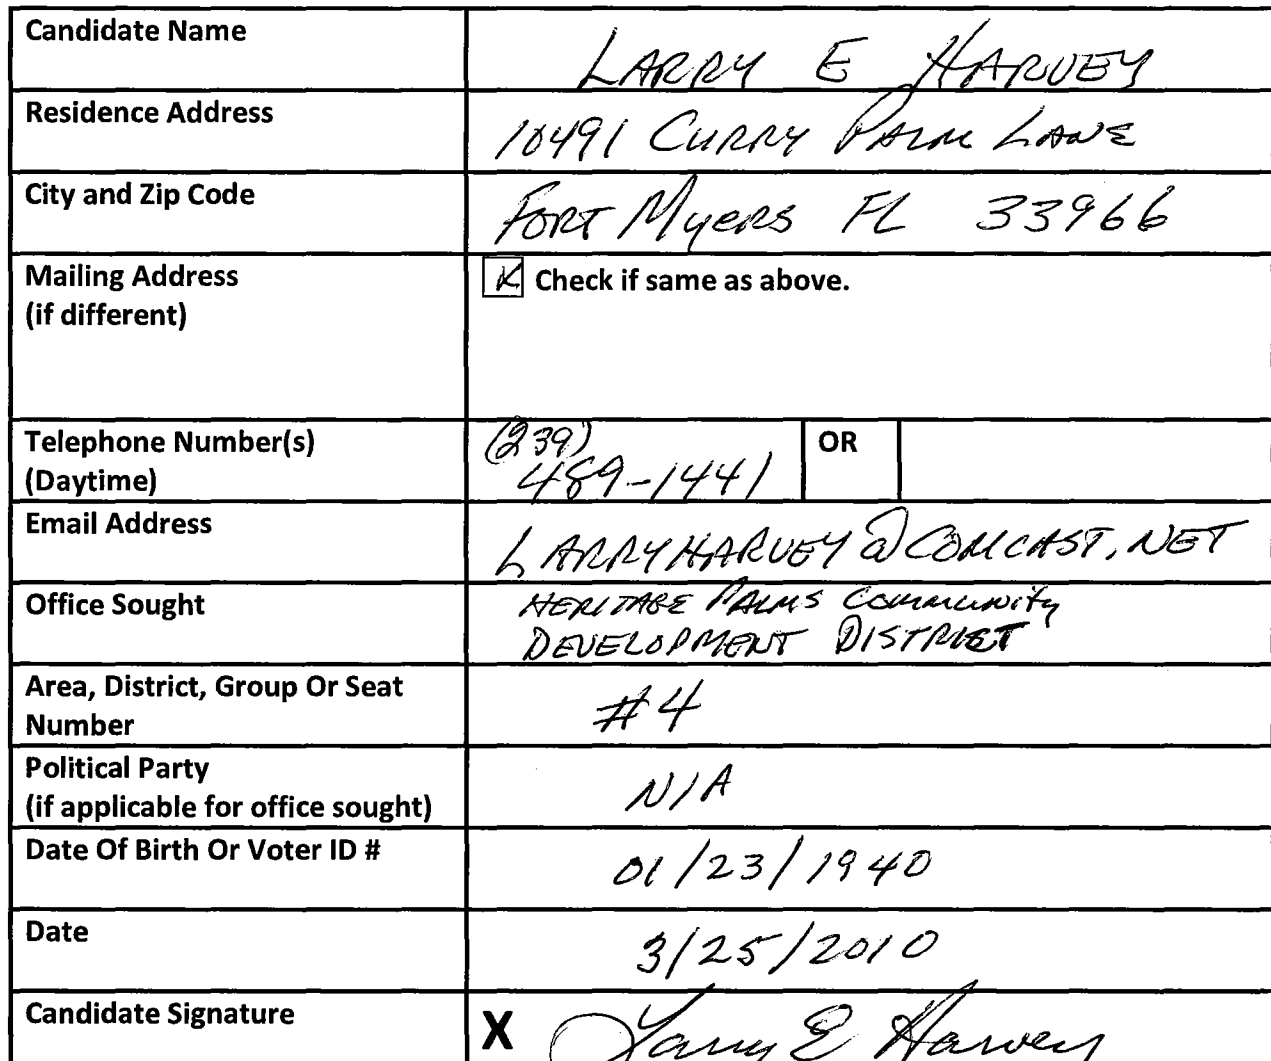 Candidate Name LARRY E HARVEY
Residence Address 10491 CURRY PALM LANE
City and Zip Code FORT Myers FL 33966
Mailing Address Check if same as above.
(if different)
Telephone Number(s) (239) OR
(Daytime) 489-1441
Email Address LARRYHARVEY@COMCAST.NET
Office Sought HERITAGE PALMS COMMUNITY
DEVELOPMENT DISTRICT
Area, District, Group Or Seat #4
Number
Political Party N/A
(if applicable for office sought)
Date Of Birth Or Voter ID # 01/23/1940
Date 3/25/2010
Candidate Signature X Larry E Harvey